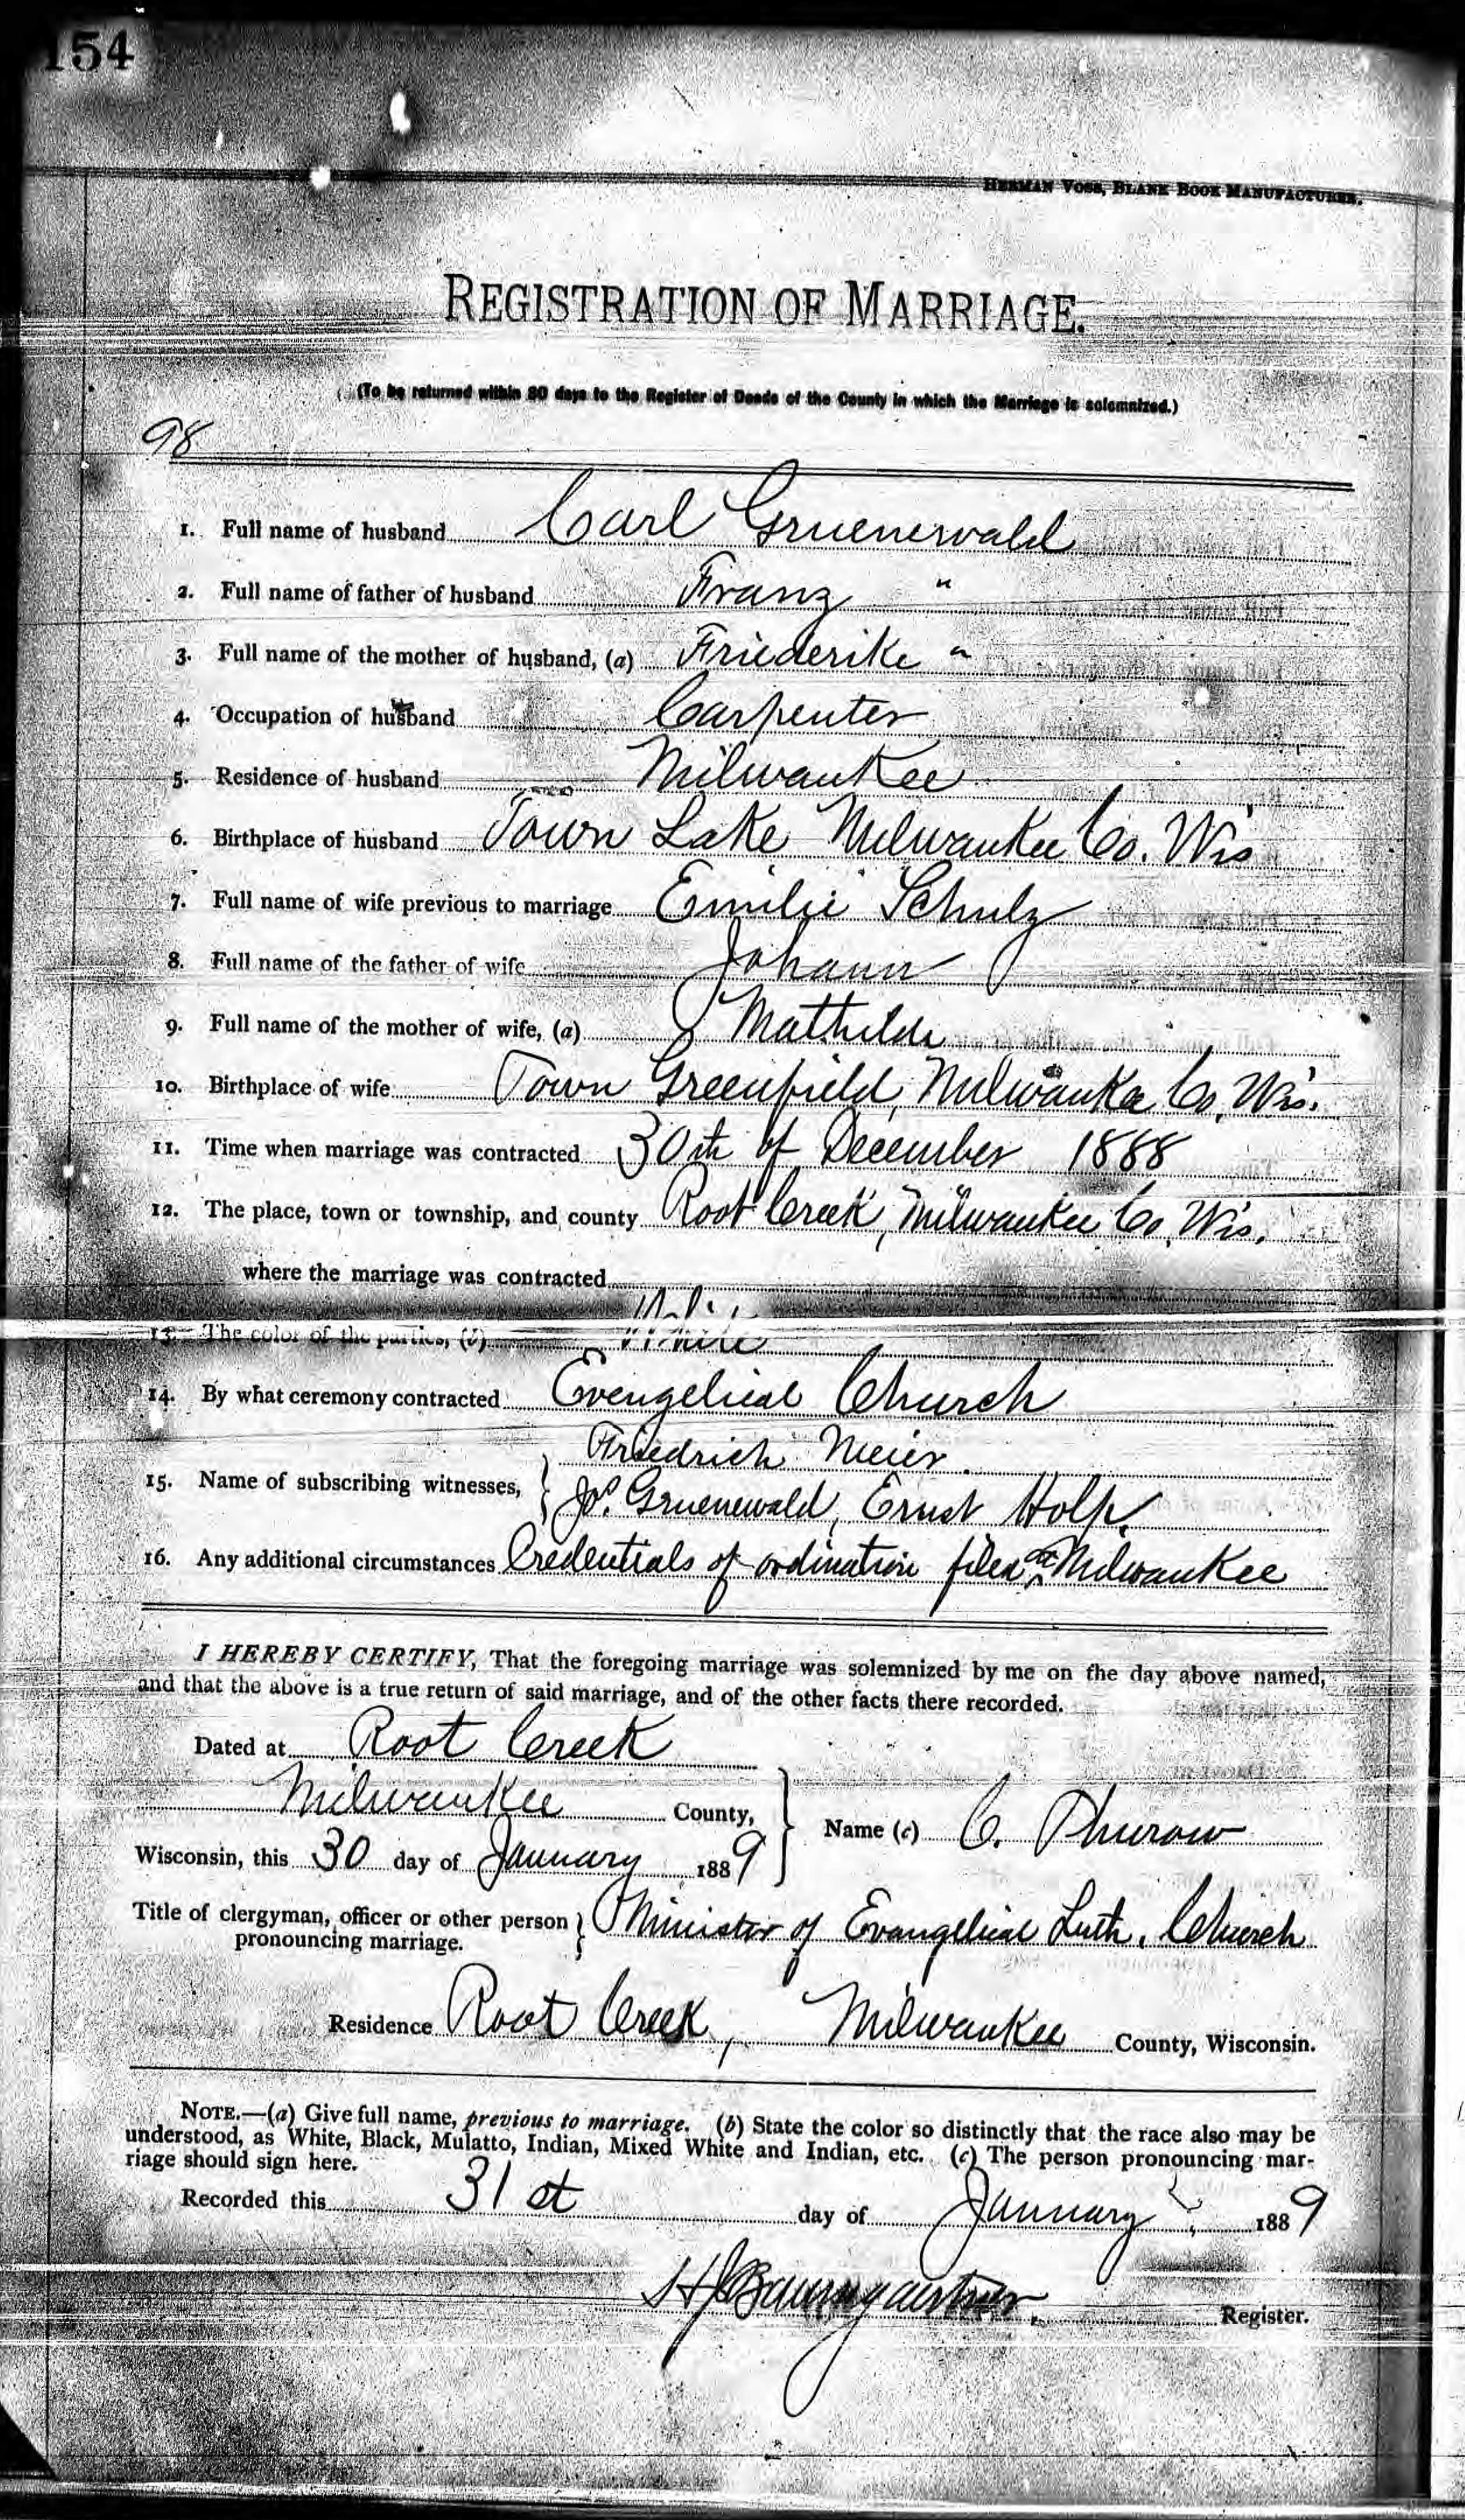 154
HERMAN VOSS, BLANK BOOK MANUFACTURER.
REGISTRATION OF MARRIAGE.
(To be returned within 30 days to the Register of Deeds of the County in which the Marriage is solemnized.)
98
1. Full name of husband Carl Gruenewald
2. Full name of father of husband Franz "
3. Full name of the mother of husband, (a) Friederike "
4. Occupation of husband Carpenter
5. Residence of husband Milwaukee
6. Birthplace of husband Town Lake Milwaukee Co. Wis
7. Full name of wife previous to marriage Emilie Schulz
8. Full name of the father of wife Johann
9. Full name of the mother of wife, (a) Mathilde
10. Birthplace of wife Town Greenfield, Milwauka Co, Wis.
11. Time when marriage was contracted 30th of December 1888
12. The place, town or township, and county Root Creek, Milwaukee Co, Wis.
where the marriage was contracted
13. The color of the parties, (b) White
14. By what ceremony contracted Evengelical Church
Friedrich Meier.
15. Name of subscribing witnesses, Jos. Gruenewald, Ernst Holp.
16. Any additional circumstances Credentials of ordination filed at Milwaukee
I HEREBY CERTIFY, That the foregoing marriage was solemnized by me on the day above named,
and that the above is a true return of said marriage, and of the other facts there recorded.
Dated at Root Creek
Milwaukee County,
Name (c) C. Thurow
Wisconsin, this 30 day of January 1889
Title of clergyman, officer or other person pronouncing marriage. Minister of Evangelical Luth. Church
Residence Root Creek, Milwaukee County, Wisconsin.
NOTE.—(a) Give full name, previous to marriage. (b) State the color so distinctly that the race also may be
understood, as White, Black, Mulatto, Indian, Mixed White and Indian, etc. (c) The person pronouncing mar-
riage should sign here.
Recorded this 31st day of January, 1889
H J Baumgaertner, Register.